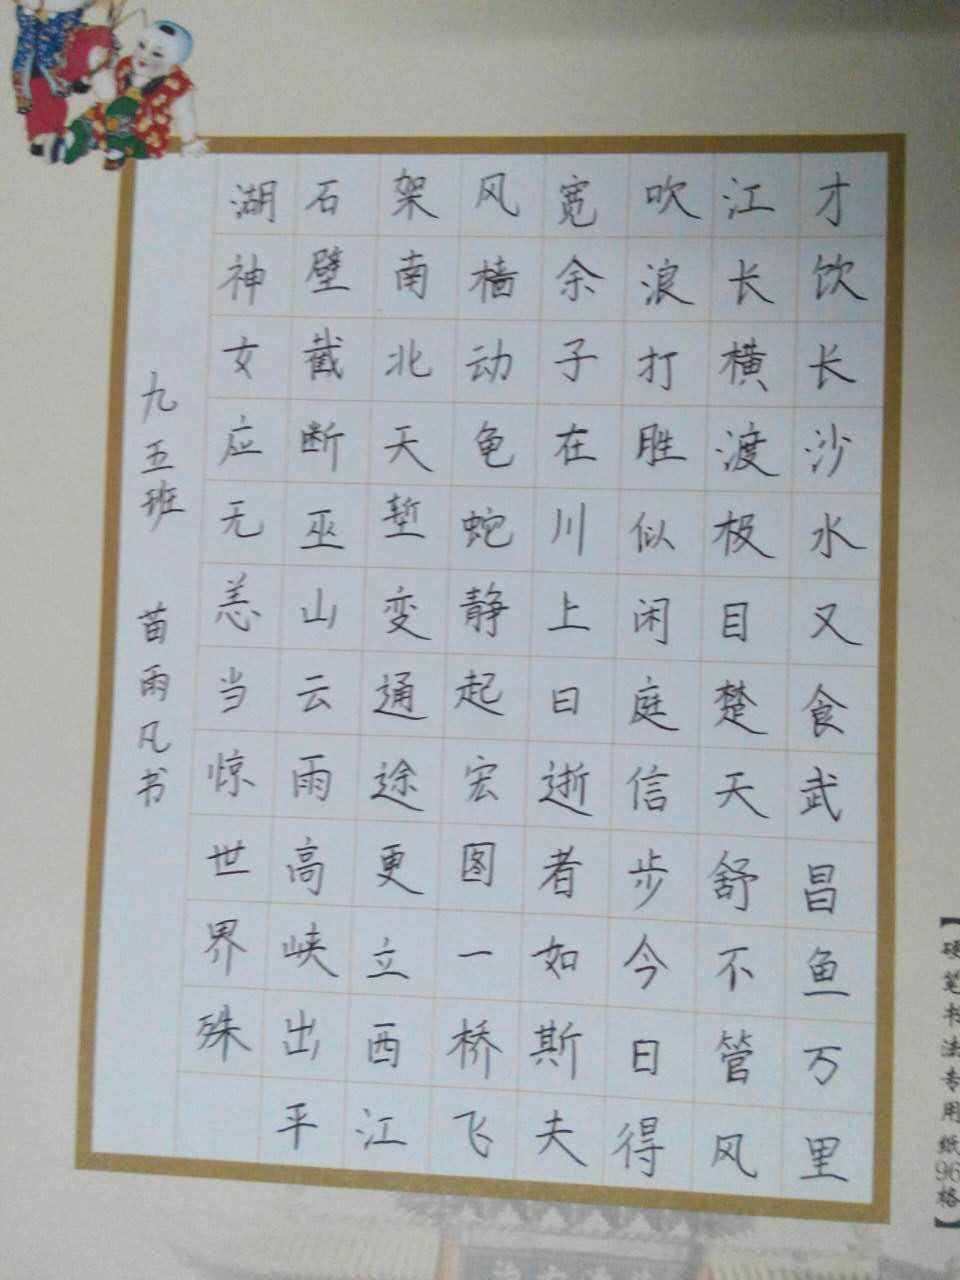 才饮长沙水又食武昌鱼万里
江长横渡极目楚天舒不管风
吹浪打胜似闲庭信步今日得
宽余子在川上曰逝者如斯夫
风樯动龟蛇静起宏图一桥飞
架南北天堑变通途更立西江
石壁截断巫山云雨高峡出平
湖神女应无恙当惊世界殊
九五班 苗雨凡书
【硬笔书法专用纸96格】